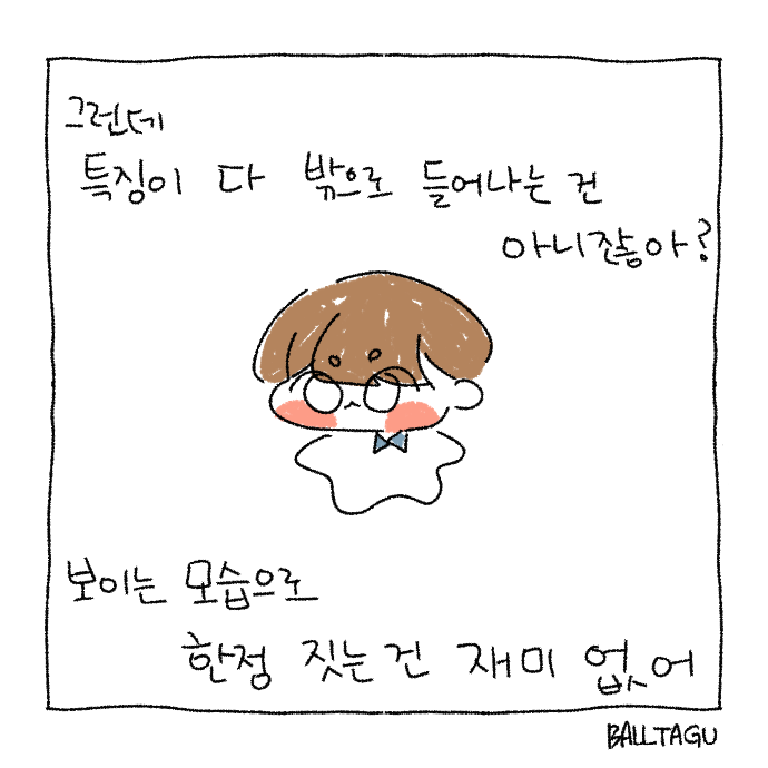 그런데
특징이 다 밖으로 들어나는 건
아니잖아?
보이는 모습으로
한정 짓는건 재미 없어
BALLTAGU